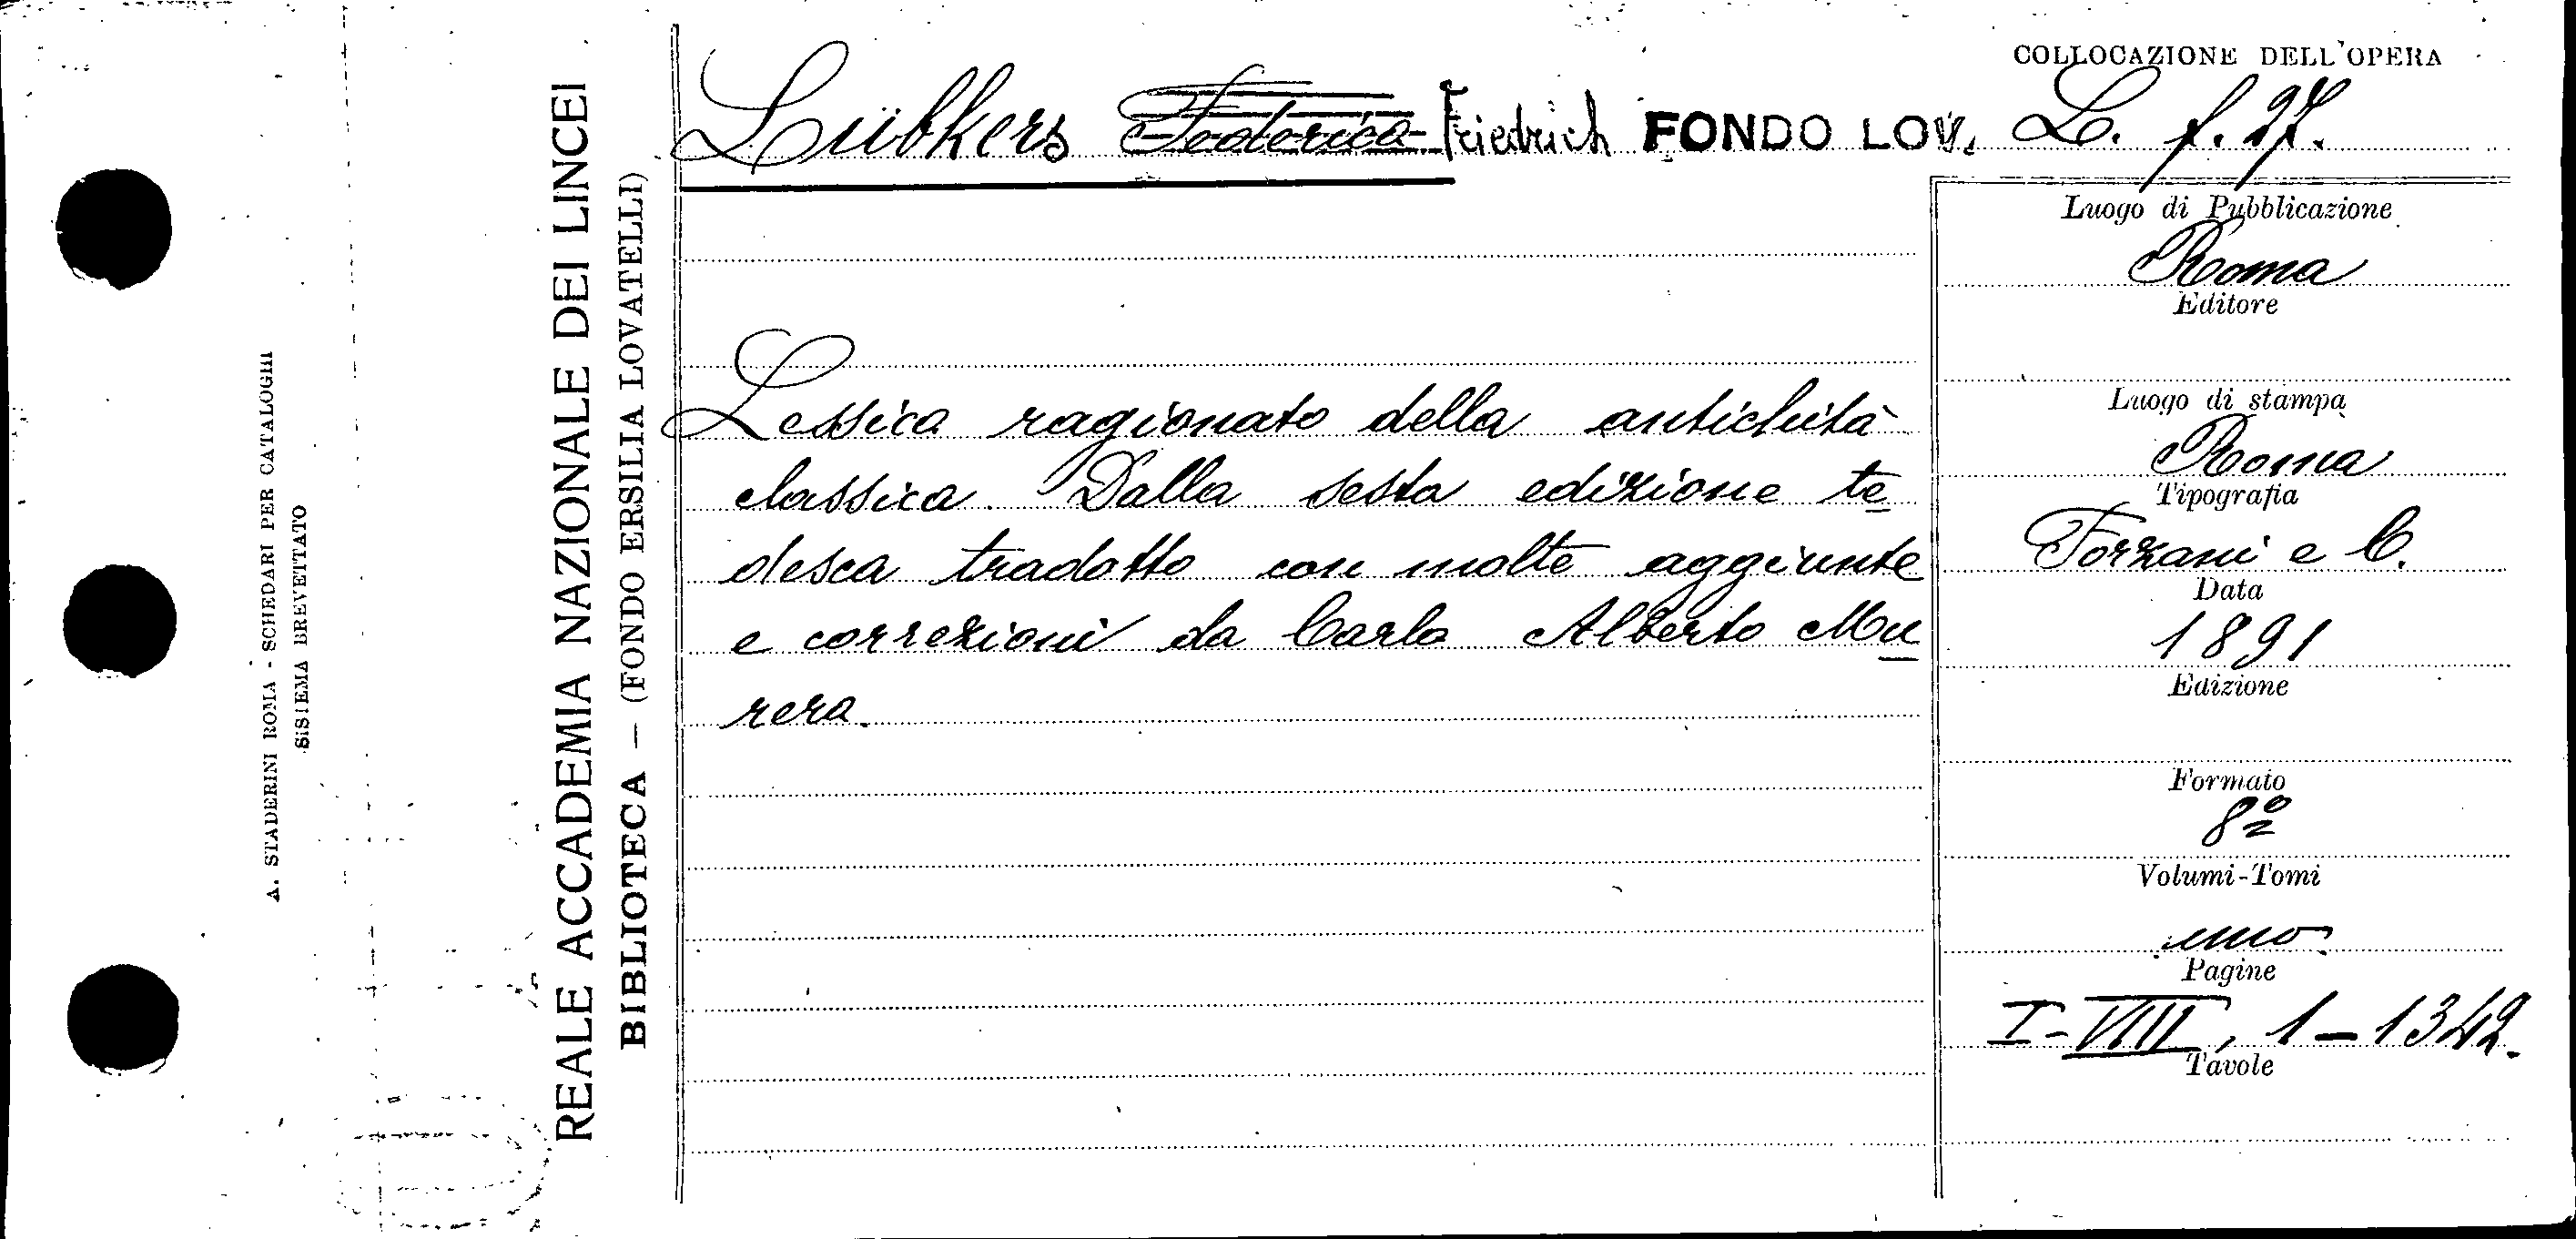 COLLOCAZIONE DELL'OPERA
Lübkers Federico Friedrich FONDO LOV. L. f. 27.
Lessico ragionato della antichità
classica. Dalla sesta edizione te
desca tradotto con molte aggiunte
e correzioni da Carlo Alberto Mu
rera.
Luogo di Pubblicazione
Roma
Editore
Luogo di stampa
Roma
Tipografia
Forzani e C.
Data
1891
Edizione
Formato
8º
Volumi-Tomi
uno
Pagine
I-VIII, 1-1342.
Tavole
REALE ACCADEMIA NAZIONALE DEI LINCEI
BIBLIOTECA – (FONDO ERSILIA LOVATELLI)
A. STADERINI ROMA - SCHEDARI PER CATALOGHI
SISTEMA BREVETTATO